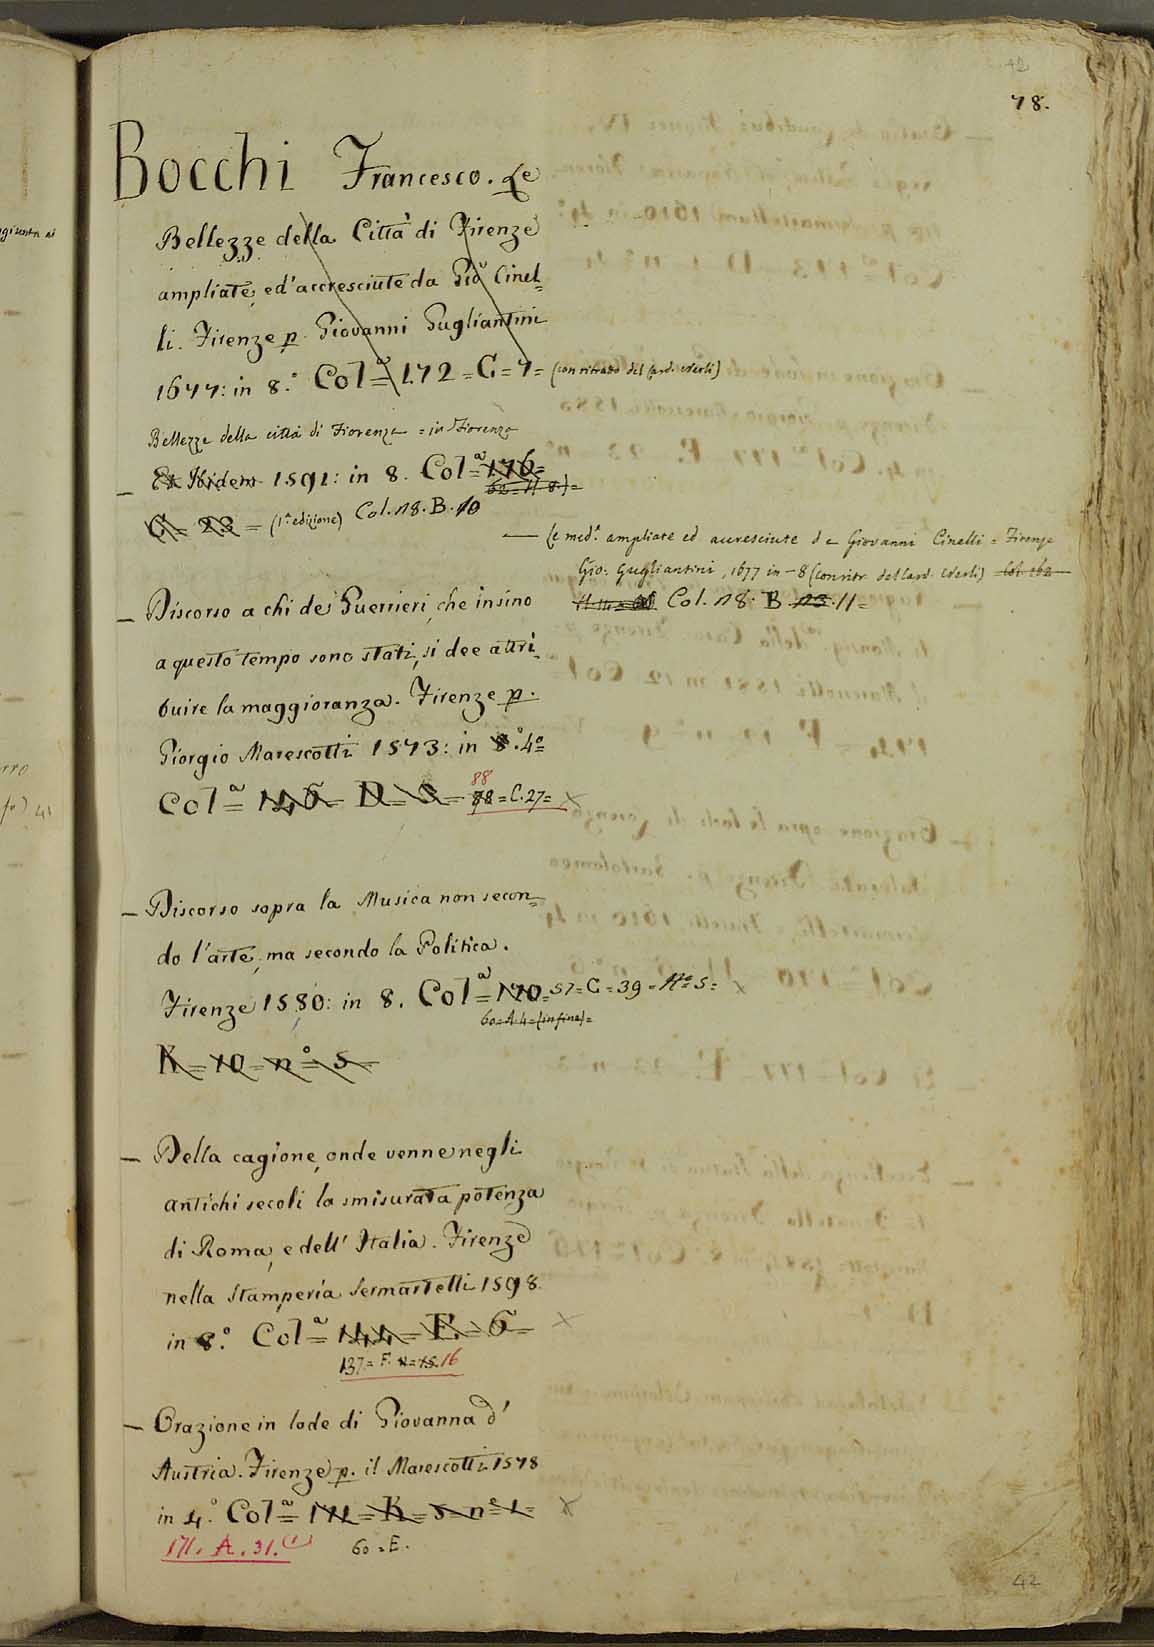 42
78.
Bocchi Francesco. Le
Bellezze della Città di Firenze
ampliate, ed' accresciute da Gio Cinel=
li. Firenze p. Giovanni Gugliantini
1677: in 8.° Col.ª = 172 = G = 7 = (con ritratto del Card. Nerli)
Bellezze della città di Fiorenza = in Fiorenza
— Et Ibidem 1591: in 8. Col.ª = 176 =
G = 22 = (1ª edizione) Col. 78. B. 10
— Le med.e ampliate ed accresciute da Giovanni Cinelli = Firenze
Gio: Gugliantini, 1677 in-8 (con ritr. del Card. Nerli) Col. 162
Col. 78. B. 11 =
— Discorso a chi de' Guerrieri, che insino
a questo tempo sono stati, si dee attri=
buire la maggioranza. Firenze p.
Giorgio Marescotti 1573: in 8.° 4°=
88
Col.ª = 146 = D = 8 = 78 = C. 27 = X
— Discorso sopra la Musica non secon=
do l'arte, ma secondo la Politica.
Firenze 1580: in 8. Col.ª = 170 = 57 = C = 39 = N° 5 = X
60 = A. 4 = (in fine) =
K = 10 = n° = 5 =
— Della cagione, onde venne negli
antichi secoli la smisurata potenza
di Roma, e dell' Italia. Firenze
nella Stamperia Sermartelli 1598.
in 8.° Col.ª = 144 = E = 6 = X
137 = F. = 15. 16
— Orazione in lode di Giovanna d'
Austria. Firenze p. il Marescotti 1578
in 4.° Col.ª = 171 = K = 5 = n° = 1 = X
171. A. 31. (1) 60 = E.
42